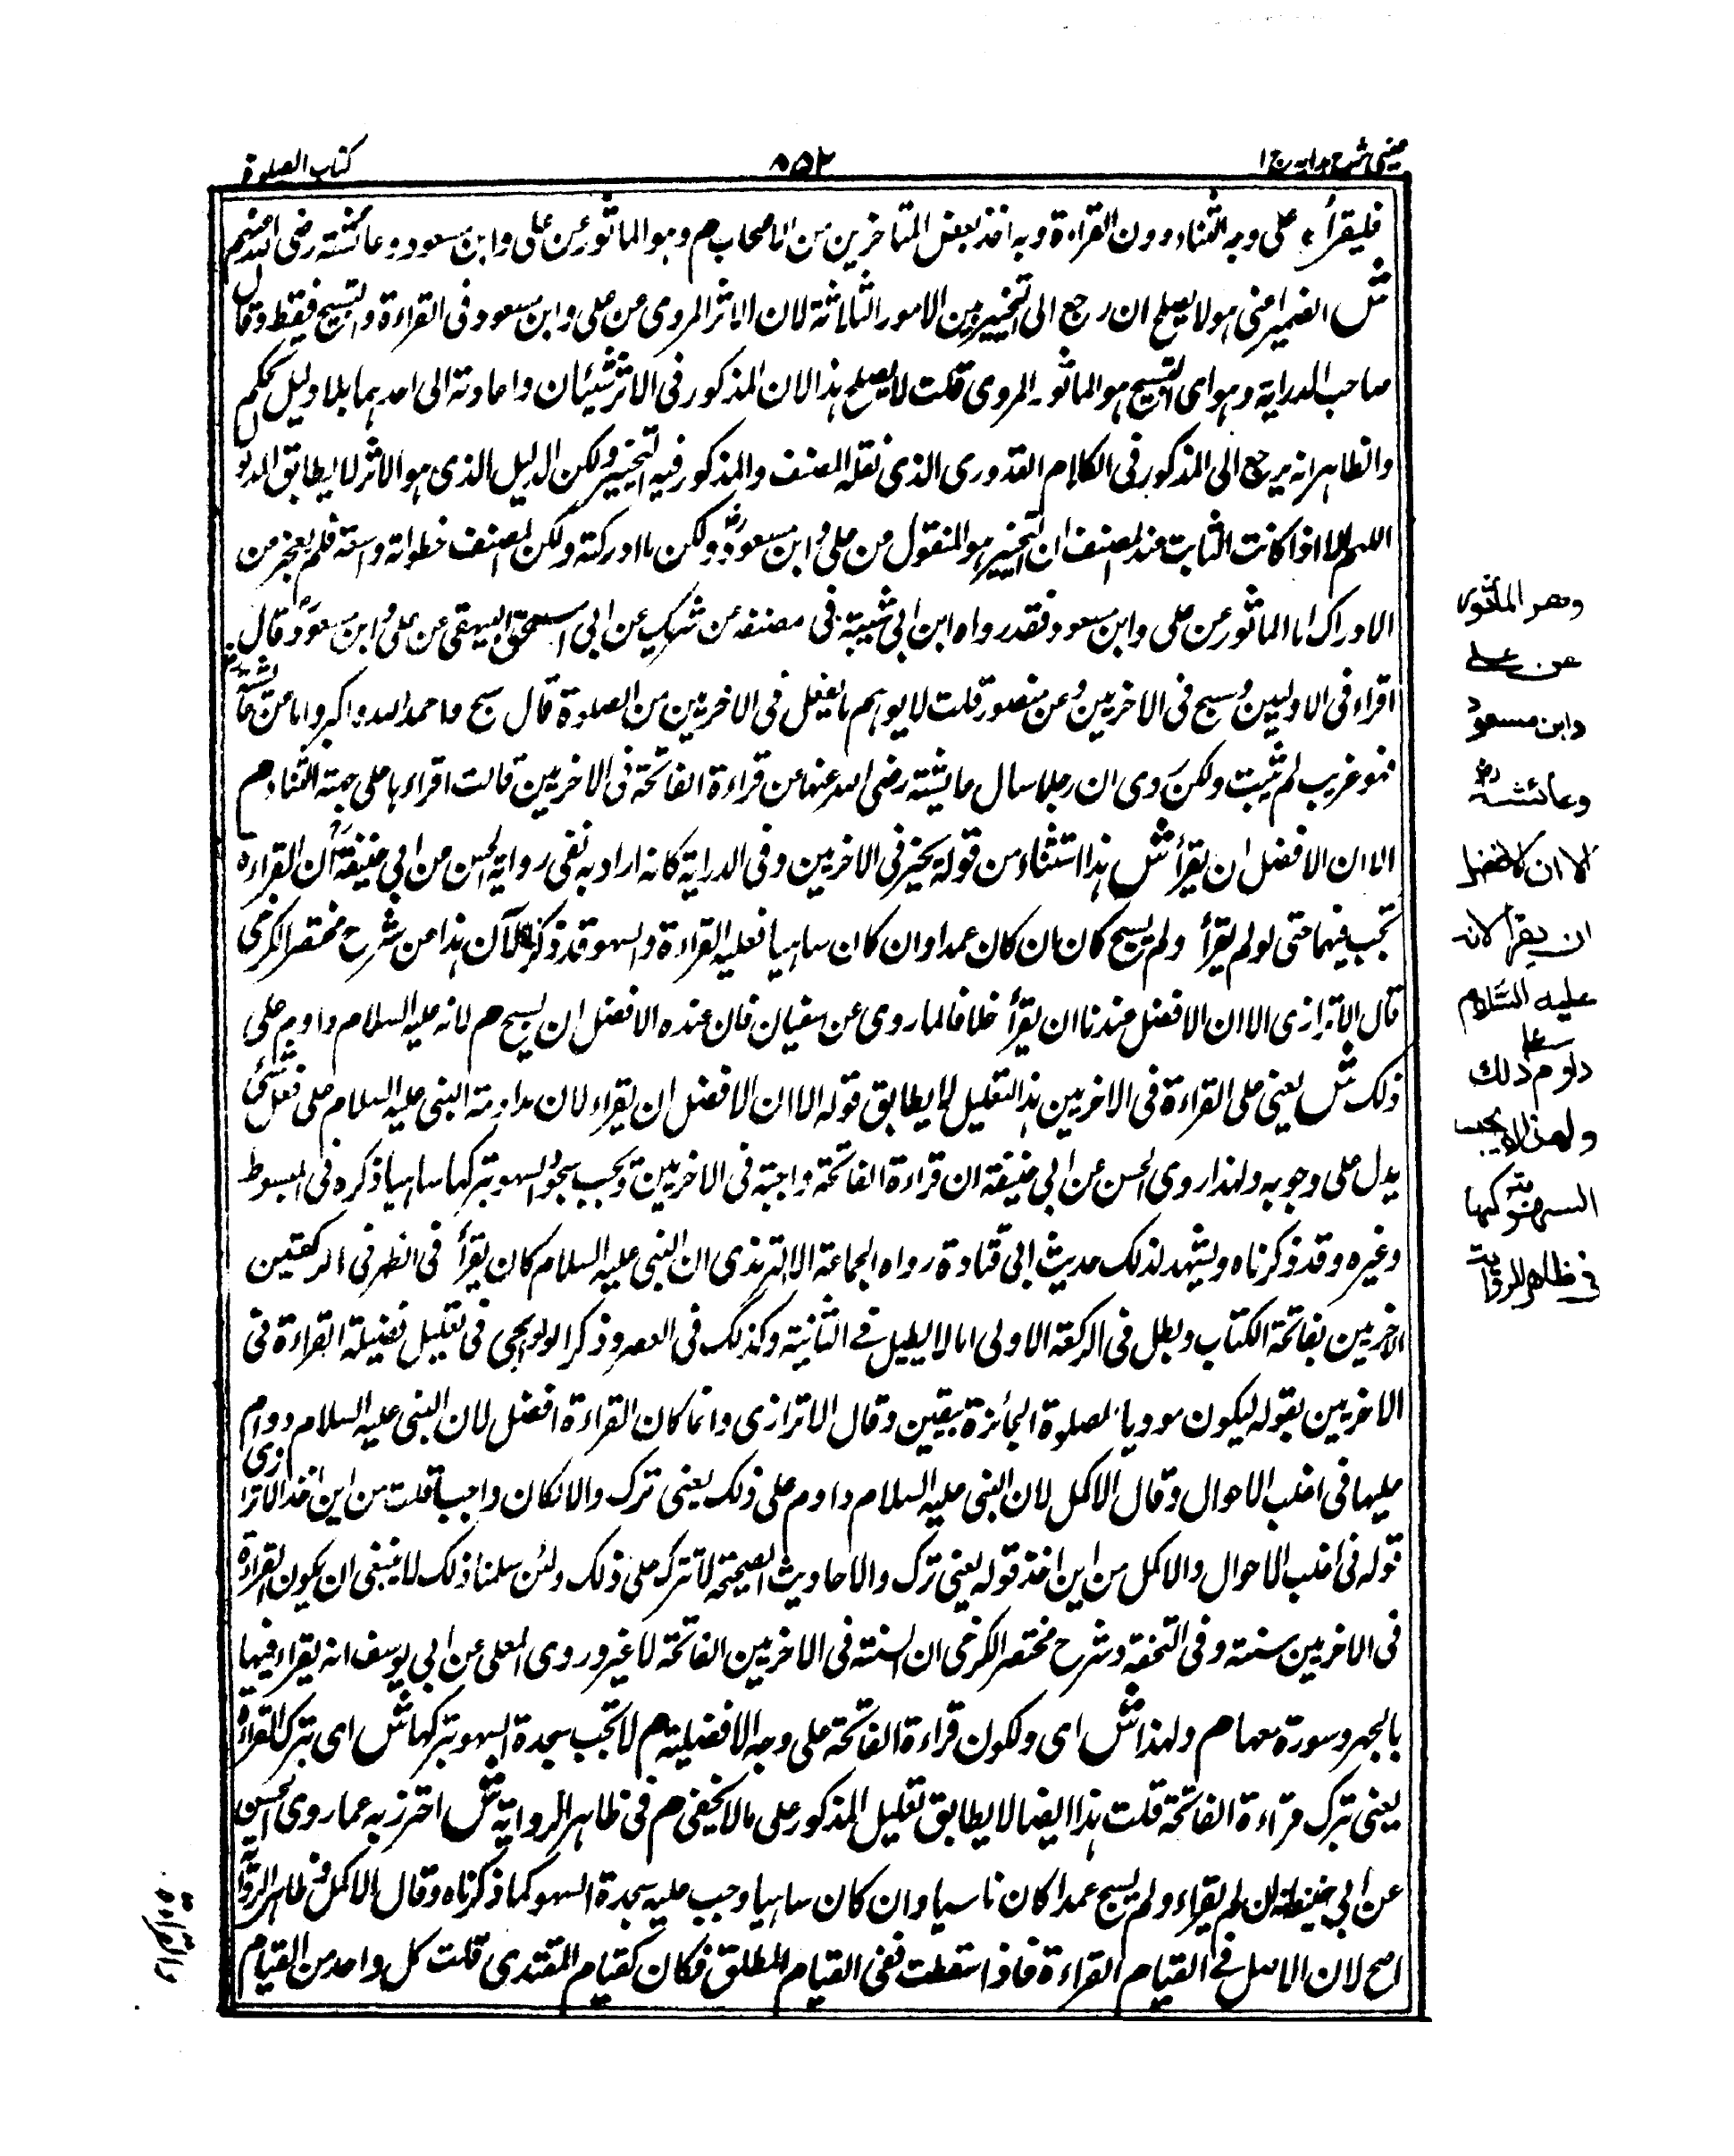 عینی شرح ہدایہ ج ۱
۸۵۲
کتاب الصلوة
فلیقرأ علی وجه الثناء دون القراءة وبه اخذ بعض المتاخرین من الاصحاب م وهو الماثور عن علی وابن مسعود وعائشة رضی الله عنهم
ش الضمیر اعنی هو لا یصلح ان رجع الی التخییر بین الامور الثلاثة لان الاثر المروی عن علی وابن مسعود فی القراءة والتسبیح فقط وقال
صاحب الدرایة وهو ای التسبیح هو الماثور المروی قلت لا یصلح هذا لان المذکور فی الاثر شیئان واعادته الی احدهما بلا دلیل تحکم
والظاهر انه یرجع الی المذکور فی الکلام القدوری الذی نقله المصنف والمذکور فیه التخییر ولکن الدلیل الذی هو الاثر لا یطابق المدلول
اللهم الا اذا کانت الثابت عند المصنف ان التخییر هو المنقول من علی وابن مسعود ولکن ما ادرکته ولکن المصنف خطواته واسعة فلم یعجز من
الادراک اما الماثور عن علی وابن مسعود فقد رواه ابن ابی شیبة فی مصنفه عن شریک عن ابی اسحق البیهقی عن علی وابن مسعود قال
اقراء فی الاولیین وسبح فی الاخریین وعن منصور قلت لابراهیم ما یفعل فی الاخریین من الصلوة قال سبح واحمد الله واکبر واما عن عائشة
فهو غریب لم یثبت ولکن روی ان رجلا سال عایشة رضی الله عنها عن قراءة الفاتحة فی الاخریین قالت اقراءها علی جهة الثناء م
الا ان الافضل ان یقرأ ش هذا استثناء من قوله یخیر فی الاخریین وفی الدرایة کانه اراد به نفی روایة الحسن من ابی حنیفة ان القراءة
تجب فیهما حتی لو لم یقرأ ولم یسبح کان ان کان عمدا وان کان ساهیا فعلیه القراءة والسهو قد ذکر الآن هذا من شرح مختصر الکرخی
قال الاترازی الا ان الافضل عندنا ان یقرأ خلافا لما روی عن سفیان فان عنده الافضل ان یسبح م لانه علیه السلام داوم علی
ذلک ش یعنی علی القراءة فی الاخریین هذا التعلیل لا یطابق قوله الا ان الافضل ان یقراء لان مداومة النبی علیه السلام علی فعل شئ
یدل علی وجوبه ولهذا روی الحسن عن ابی حنیفة ان قراءة الفاتحة واجبة فی الاخریین وتجب سجود السهو بترکها ساهیا ذکره فی المبسوط
وغیره وقد ذکرناه ویشهد لذلک حدیث ابی قتادة رواه الجماعة الا الترمذی ان النبی علیه السلام کان یقرأ فی الظهر فی الرکعتین
الاخریین بفاتحة الکتاب ویطل فی الرکعة الاولی امالا یطیل فے الثانیة وکذلک فی العصر وذکر الولوالجی فی تعلیل فضیلة القراءة فی
الاخریین بقوله لیکون مودیا الصلوة الجائزة بیقین وقال الاترازی وانما کان القراءة افضل لان النبی علیه السلام دوام
علیها فی اغلب الاحوال وقال الاکمل لان النبی علیه السلام داوم علی ذلک یعنی ترک والا لکان واجبا قلت من این اخذ الاترازی
قوله فی اغلب الاحوال والاکمل من این اخذ قوله یعنی ترک والاحادیث الصحیحة لا تترک علی ذلک ولئن سلمنا ذلک لا ینبغی ان یکون القراءة
فی الاخریین سنته وفی التحفة وشرح مختصر الکرخی ان السنة فی الاخریین الفاتحة لا غیر وروی المعلی عن ابی یوسف انه یقراء فیها
بالجهر وسورة معها م ولهذا ش ای ولکون قراءة الفاتحة علی وجه الافضلیة م لا تجب سجدة السهو بترکها ش ای بترک القراءة
یعنی بترک قراءة الفاتحة قلت هذا ایضا لا یطابق تعلیل المذکور علی مالا یخفی م فی ظاهر الروایة ش احترز به عما روی الحسن
عن ابی حنیفة ان لم یقراء ولم یسبح عمدا کان ناسیا وان کان ساهیا وجب علیه سجدة السهو کما ذکرناه وقال الاکمل فی ظاهر الروایة
اصح لان الاصل فے القیام القراءة فاذا سقطت فغی القیام المطلق فکان کقیام المقتدی قلت کل واحد من القیام
وهو المأثور
عن علی
وابن مسعود
وعائشه رض
الا ان الافضل
ان یقرأ لانه
علیه السلام
داوم علی ذلك
ولهذا لا یجب
السهو بترکها
فی ظاهر الروایة
والقراءة